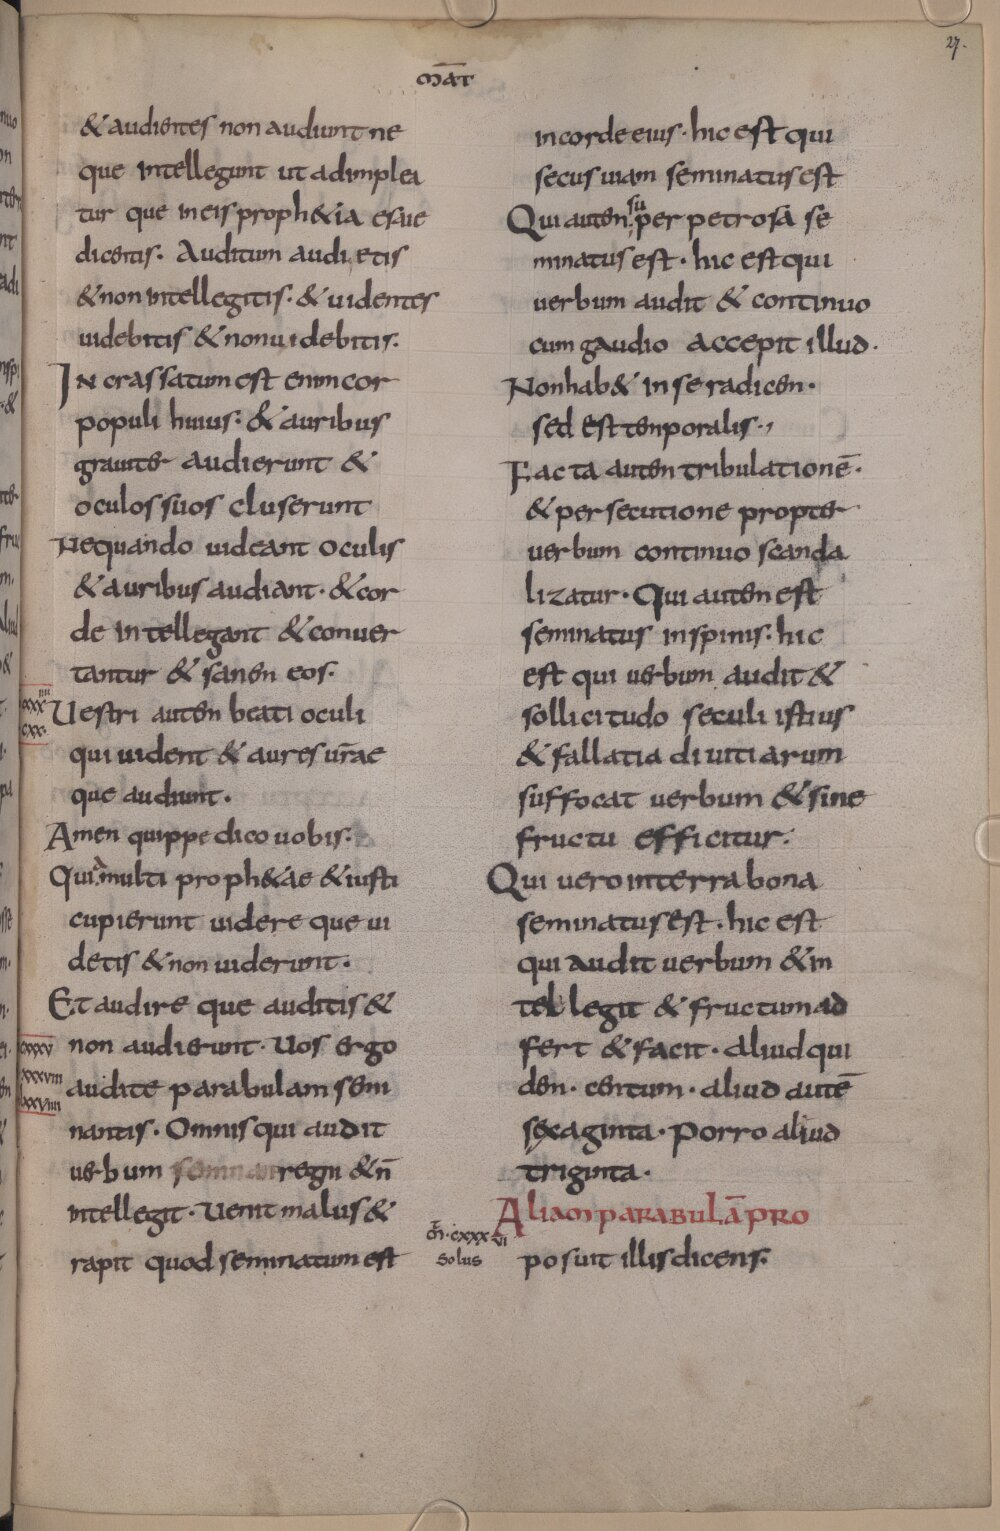 27.
māt
& audientes non audiunt ne
que intellegunt ut adimplea
tur que in eis proph&ia esaie
dicentis. Auditum audi&etis
& non intellegitis. & uidentes
uidebitis & non uidebitis.
Incrassatum est enim cor
populi huius. & auribus
grauiter audierunt &
oculos suos cluserunt
Nequando uideant oculis
& auribus audiant. & cor
de intellegant & conuer
tantur & sanen eos.
Uestri auten beati oculi
qui uident & aures ur̄ae
que audiunt.
Amen quippe dico uobis.
Quia multi proph&ae & iusti
cupierunt uidere que ui
detis & non uiderunt.
Et audire que auditis &
non audierunt. Uos ergo
audite parabulam semi
nantis. Omnis qui audit
uerbum regni & n̄
intellegit. Uenit malus &
rapit quod seminatum est
cxxxv
in corde eius. hic est qui
secus uiam seminatus est
Qui auten super petrosa se
minatus est. hic est qui
uerbum audit & continuo
cum gaudio accepit illud.
Non hab& in se radicen.
sed est tenporalis.,
Facta auten tribulationē.
& persecutione propter
uerbum continuo scanda
lizatur. Qui auten est
seminatus in spinis. hic
est qui uerbum audit &
sollicitudo seculi istius
& fallatia diuitiarum
suffocat uerbum & sine
fructu efficitur.
Qui uero in terra bona
seminatus est. hic est
qui audit uerbum & in
tellegit & fructum ad
fert & facit. aliud qui
den. centum. aliud autē
sexaginta. Porro aliud
triginta.
Aliam parabulā pro
posuit illis dicens.
m̄.cxxxvi
solus